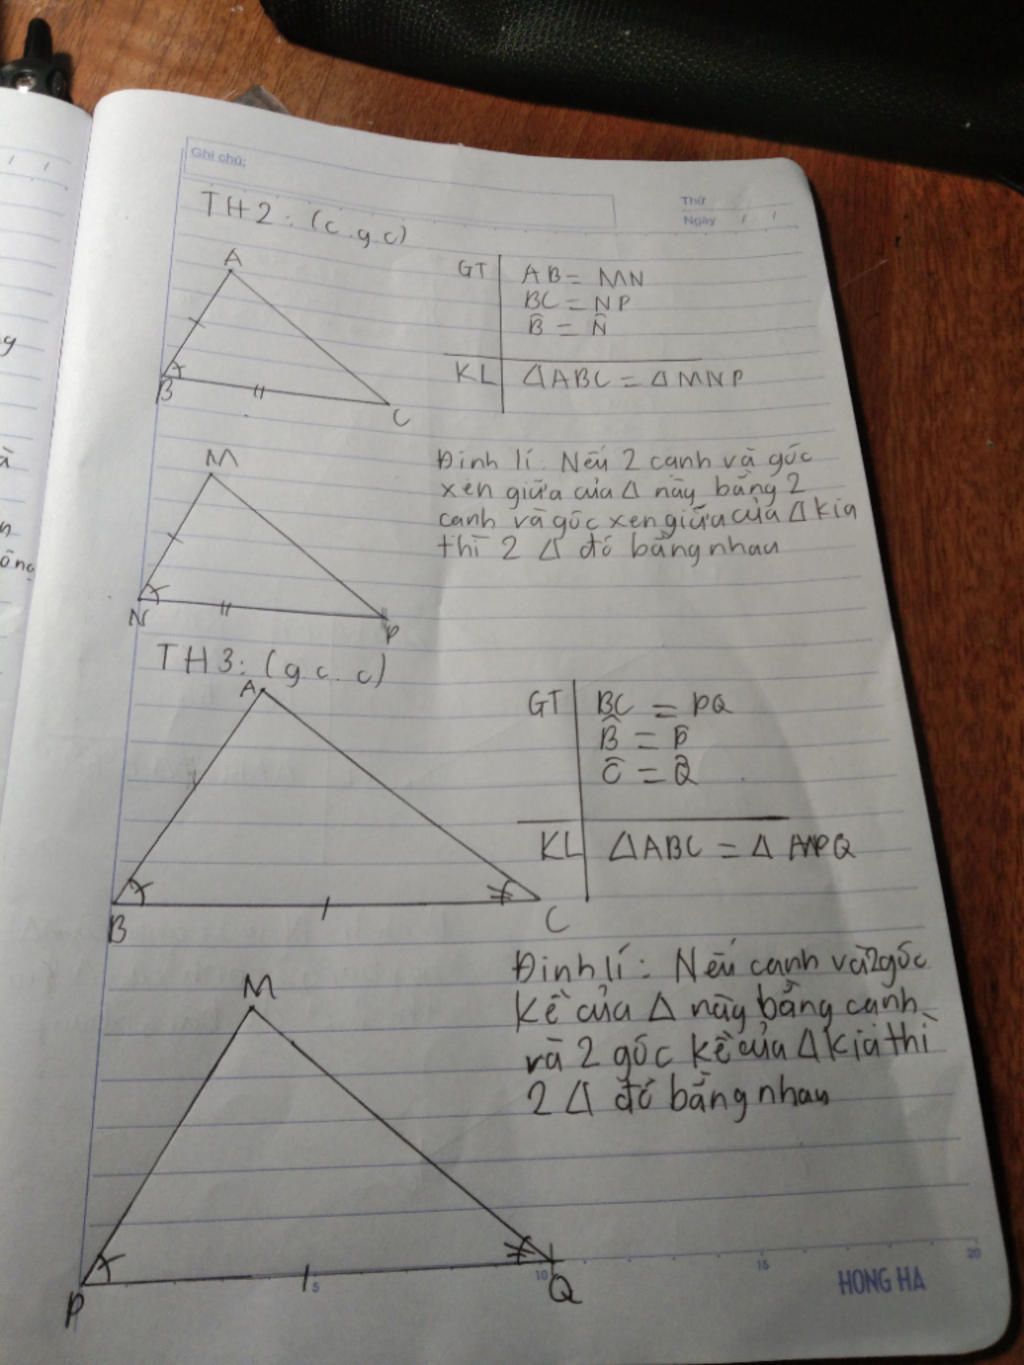 Ghi chú:
Thứ
Ngày / /
TH2: (c.g.c)
A
B
C
GT
AB = MN
BC = NP
B̂ = N̂
KL
ΔABC = ΔMNP
M
N
P
Định lí: Nếu 2 cạnh và góc
xen giữa của Δ này bằng 2
cạnh và góc xen giữa của Δ kia
thì 2 Δ đó bằng nhau
TH3: (g c. c)
A
B
C
GT
BC = PQ
B̂ = P̂
Ĉ = Q̂
KL
ΔABC = Δ MPQ
M
P
Q
Định lí: Nếu cạnh và 2 góc
kề của Δ này bằng cạnh
và 2 góc kề của Δ kia thì
2 Δ đó bằng nhau
5
10
15
20
HONG HA